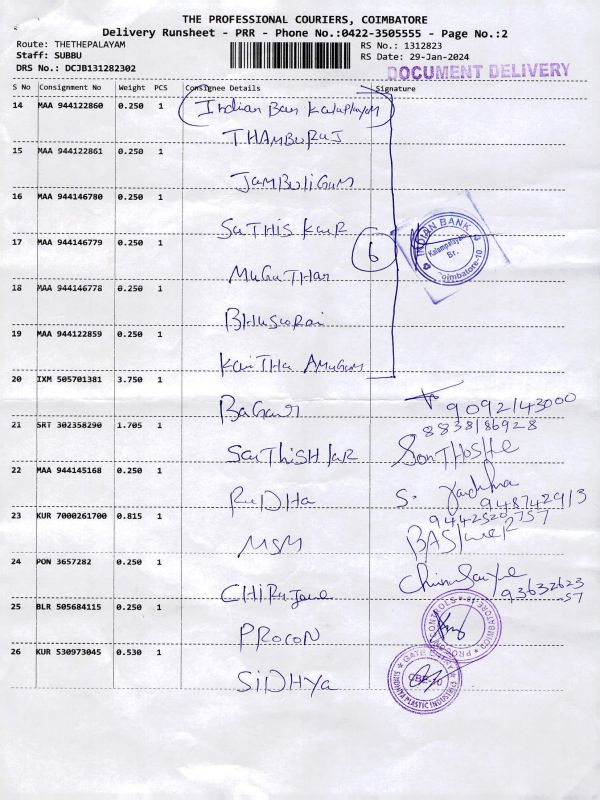 THE PROFESSIONAL COURIERS, COIMBATORE
Delivery Runsheet - PRR - Phone No.:0422-3505555 - Page No.:2
Route: THETHEPALAYAM
Staff: SUBBU
DRS No.: DCJB131282302
RS No.: 1312823
RS Date: 29-Jan-2024
DOCUMENT DELIVERY
S No Consignment No Weight PCS Consignee Details Signature
14 MAA 944122860 0.250 1 Indian Ban
THAMBURAJ
15 MAA 944122861 0.250 1
JAMBULIGUM
16 MAA 944146780 0.250 1
SATHISKAR
17 MAA 944146779 0.250 1 6
INDIAN BANK
Kalampalayam
Br.
Coimbatore-10
MuGuTHAN
18 MAA 944146778 0.250 1
19 MAA 944122859 0.250 1
KAITHA AMUGUM
20 IXM 505701381 3.750 1
9092143000
21 SRT 302358290 1.705 1 8838186928
SATHISHKAR SONTHOSHE
22 MAA 944145168 0.250 1 S.
RUDHA 948742913
23 KUR 7000261700 0.815 1 9442520757
MSM
24 PON 3657282 0.250 1
93632623
57
25 BLR 505684115 0.250 1
PROCON
26 KUR 530973045 0.530 1
SIDHYA